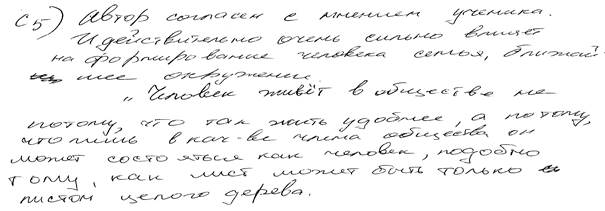 С5) Автор согласен с мнением ученика.
И действительно очень сильно влияет
на формирование человека семья, ближай-
шее окружение.
„Человек живёт в обществе не
потому, что так жить удобнее, а потому,
что лишь в кач-ве члена общества он
может состояться как человек, подобно
тому, как лист может быть только
листом целого дерева.